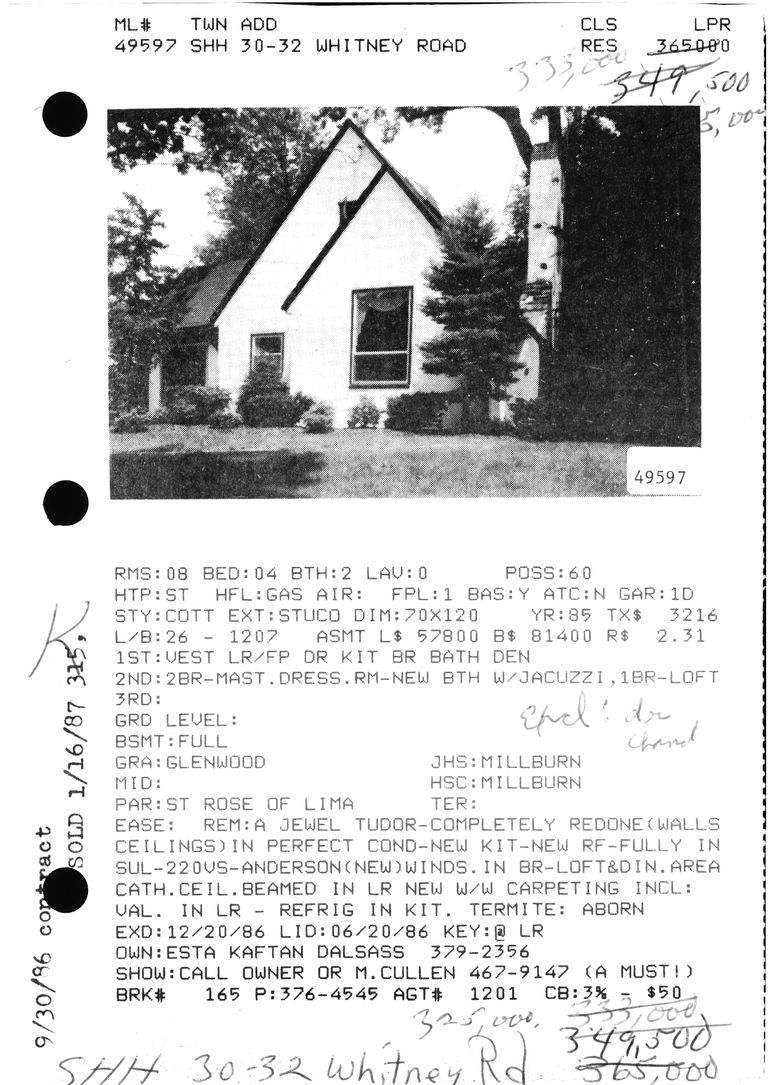 ML# TWN ADD CLS LPR
49597 SHH 30-32 WHITNEY ROAD RES 365000
333,000
349,500
5,000
49597
RMS:08 BED:04 BTH:2 LAV:0 POSS:60
HTP:ST HFL:GAS AIR: FPL:1 BAS:Y ATC:N GAR:1D
STY:COTT EXT:STUCO DIM:70X120 YR:85 TX$ 3216
L/B:26 - 1207 ASMT L$ 57800 B$ 81400 R$ 2.31
1ST:VEST LR/FP DR KIT BR BATH DEN
2ND:2BR-MAST.DRESS.RM-NEW BTH W/JACUZZI,1BR-LOFT
3RD:
GRD LEVEL:
BSMT:FULL
Excl: dr
chand
GRA:GLENWOOD JHS:MILLBURN
MID: HSC:MILLBURN
PAR:ST ROSE OF LIMA TER:
EASE: REM:A JEWEL TUDOR-COMPLETELY REDONE(WALLS
CEILINGS)IN PERFECT COND-NEW KIT-NEW RF-FULLY IN
SUL-220VS-ANDERSON(NEW)WINDS.IN BR-LOFT&DIN.AREA
CATH.CEIL.BEAMED IN LR NEW W/W CARPETING INCL:
VAL. IN LR - REFRIG IN KIT. TERMITE: ABORN
EXD:12/20/86 LID:06/20/86 KEY:@ LR
OWN:ESTA KAFTAN DALSASS 379-2356
SHOW:CALL OWNER OR M.CULLEN 467-9147 (A MUST!)
BRK# 165 P:376-4545 AGT# 1201 CB:3% - $50
325,000. 333,000
349,500
SHH 30-32 Whitney Rd 365000
K
9/30/86 contract
SOLD 1/16/87 315,